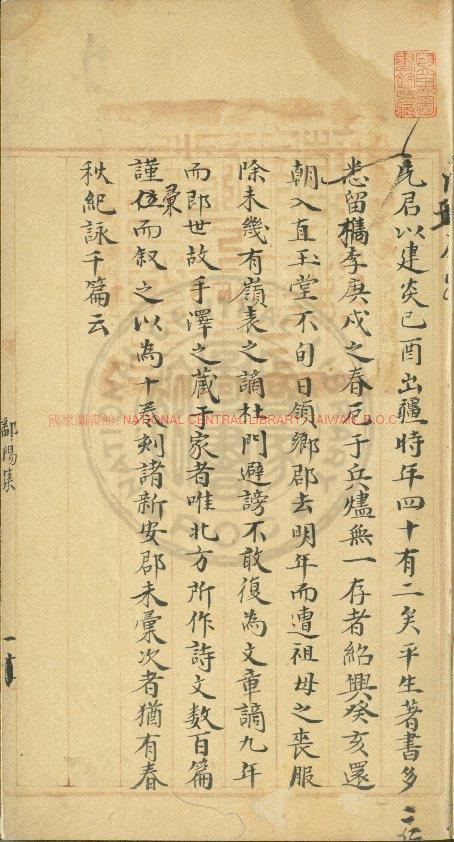 先君以建炎己酉出疆時年四十有二矣平生著書多
悉留檇李庚戌之春厄于兵燼無一存者紹興癸亥還
朝入直玉堂不旬日領鄉郡去明年而遭祖母之喪服
除未幾有嶺表之謫杜門避謗不敢復為文章謫九年
而即世故手澤之藏于家者唯北方所作詩文數百篇
謹彙位而叙之以為十卷刻諸新安郡未彙次者猶有春
秋紀詠千篇云
鄱陽集
國家圖書館 NATIONAL CENTRAL LIBRARY, TAIWAN, R.O.C